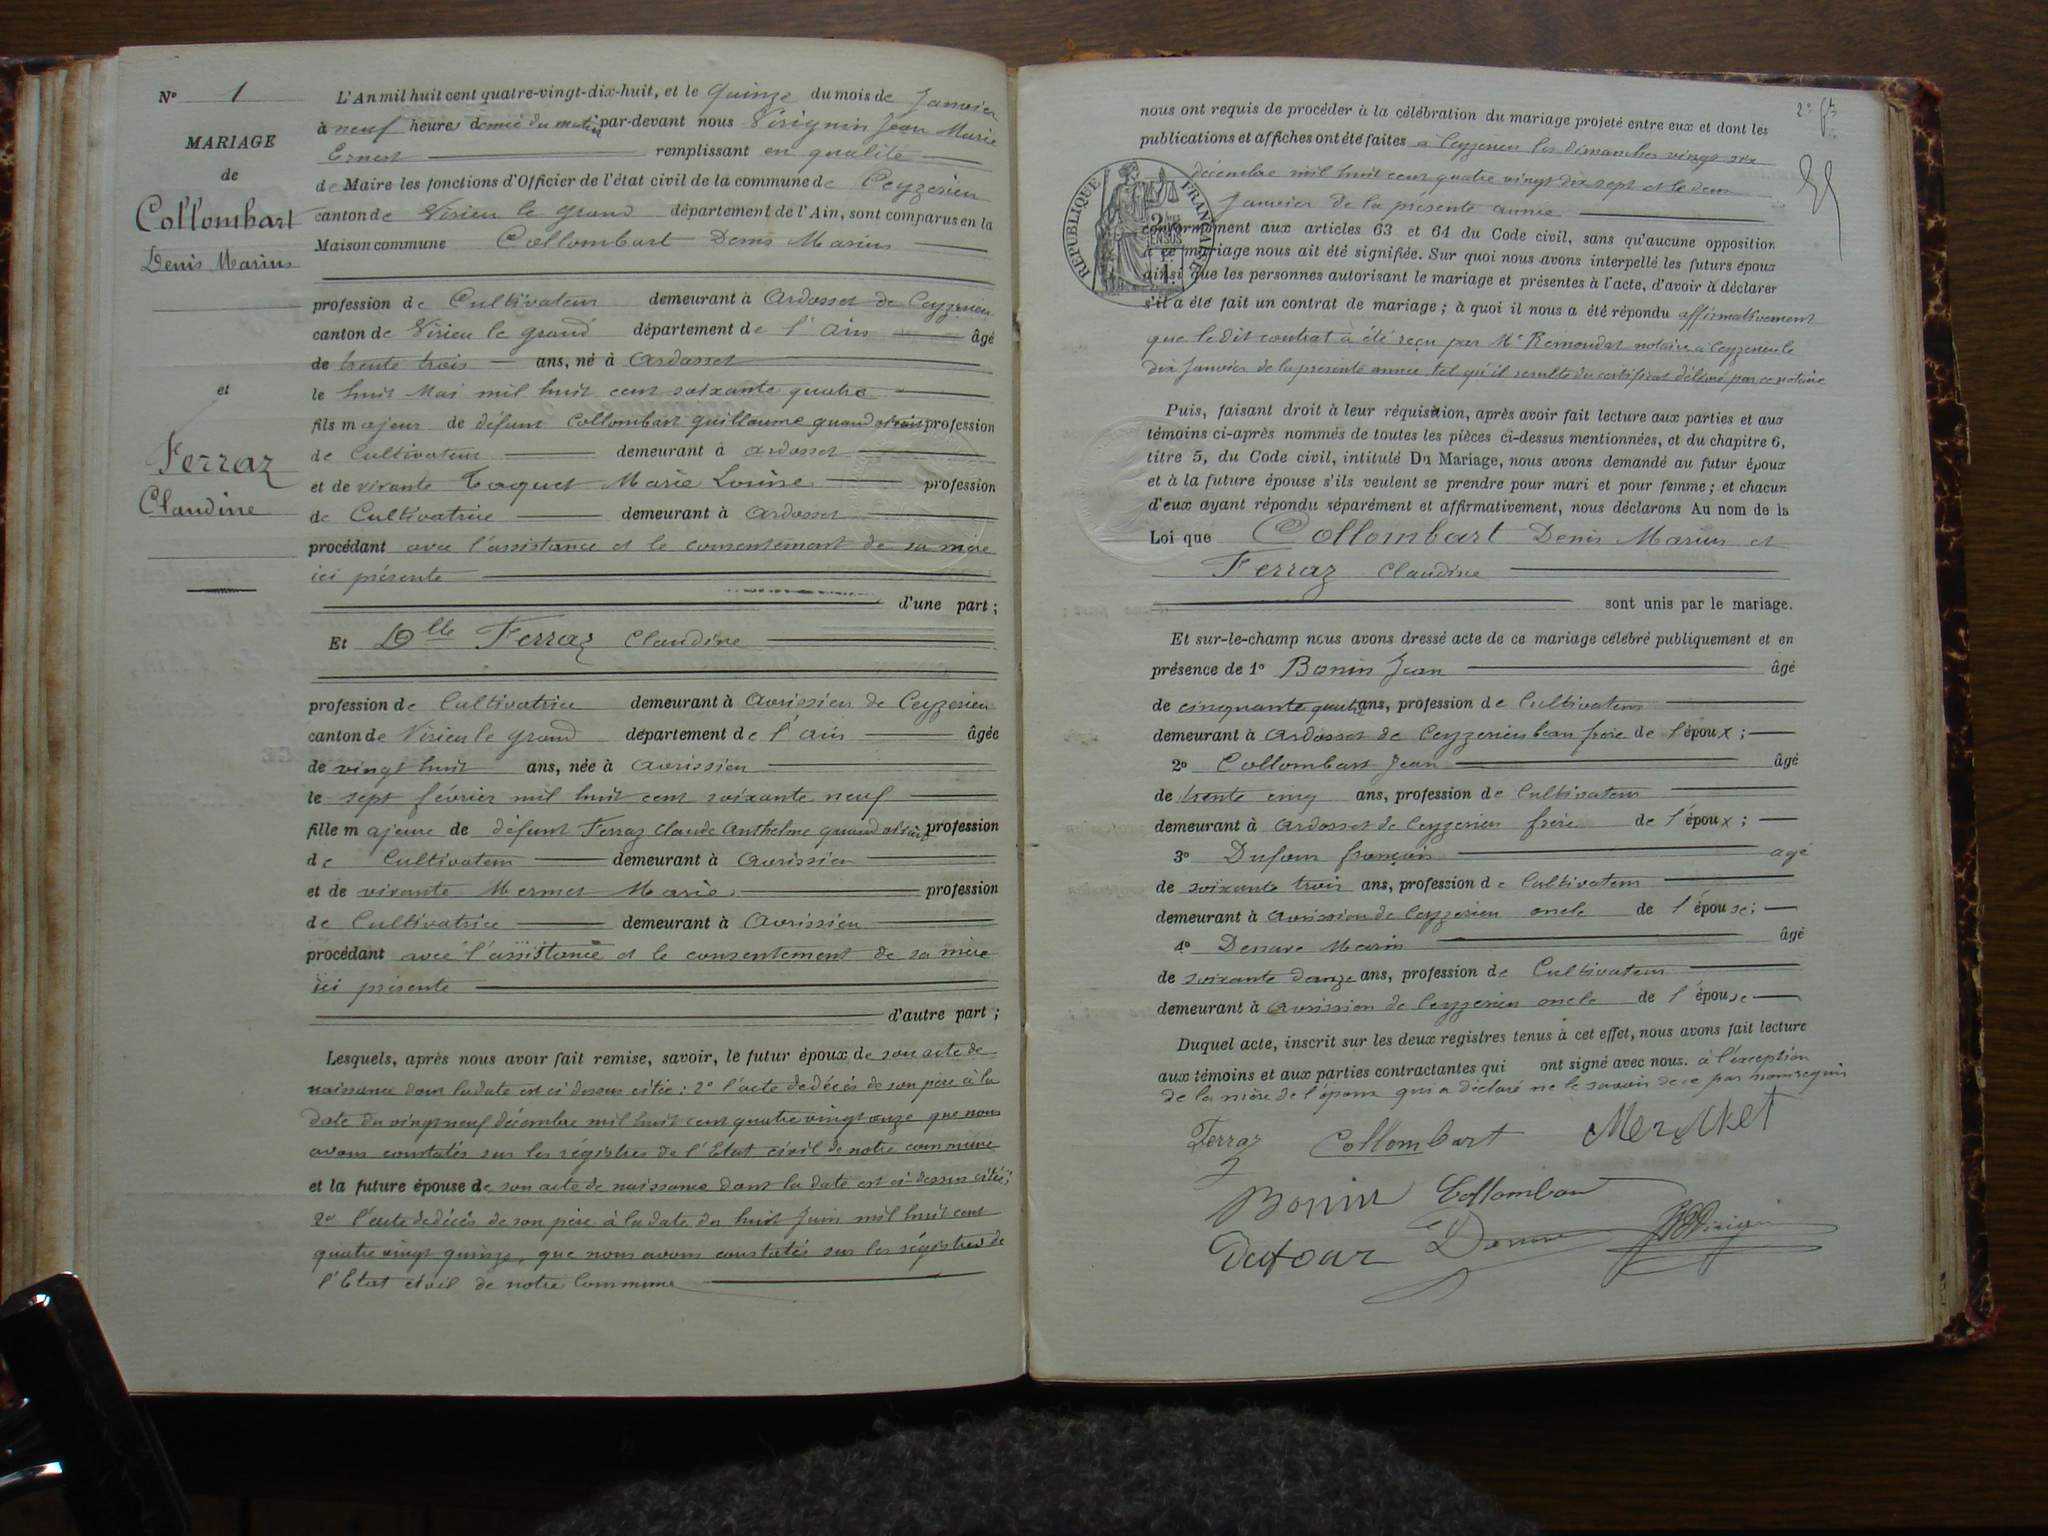 N° 1
MARIAGE
de
Collombart
Denis Marius
et
Ferraz
Claudine
L'An mil huit cent quatre-vingt-dix-huit, et le Quinze du mois de Janvier
à neuf heures demie du matin par-devant nous Virignin Jean Marie
Ernest remplissant en qualité
de Maire les fonctions d'Officier de l'état civil de la commune de Ceyzerieu
canton de Virieu le grand département de l'Ain, sont comparus en la
Maison commune Collombart Denis Marius
profession de Cultivateur demeurant à Ardosset de Ceyzerieu
canton de Virieu le grand département de l'Ain âgé
de trente trois ans, né à Ardosset
le huit Mai mil huit cent soixante quatre
fils majeur de défunt Collombart Guillaume quand vivait profession
de Cultivateur demeurant à Ardosset
et de vivante Toquet Marie Louise profession
de Cultivatrice demeurant à Ardosset
procédant avec l'assistance et le consentement de sa mère
ici présente
d'une part ;
Et Dlle Ferraz Claudine
profession de Cultivatrice demeurant à Avrissieu de Ceyzerieu
canton de Virieu le grand département de l'Ain âgée
de vingt huit ans, née à Avrissieu
le sept février mil huit cent soixante neuf
fille majeure de défunt Ferraz Claude Anthelme quand vivait profession
de Cultivateur demeurant à Avrissieu
et de vivante Mermet Marie profession
de Cultivatrice demeurant à Avrissieu
procédant avec l'assistance et le consentement de sa mère
ici présente
d'autre part ;
Lesquels, après nous avoir fait remise, savoir, le futur époux de son acte de
naissance dont la date est ci dessus citée : 2° l'acte de décès de son père à la
date du vingt neuf décembre mil huit cent quatre vingt onze que nous
avons constatés sur les régistres de l'Etat civil de notre commune
et la future épouse de son acte de naissance dont la date est ci-dessus citée ;
2° l'acte de décès de son père à la date du huit Juin mil huit cent
quatre vingt quinze, que nous avons constatés sur les régistres de
l'Etat civil de notre Commune
2e ft
nous ont requis de procéder à la célébration du mariage projeté entre eux et dont les
publications et affiches ont été faites à Ceyzerieu les dimanches vingt six
décembre mil huit cent quatre vingt dix sept et le deux
Janvier de la présente année
RÉPUBLIQUE FRANÇAISE
conformément aux articles 63 et 64 du Code civil, sans qu'aucune opposition
à ce mariage nous ait été signifiée. Sur quoi nous avons interpellé les futurs époux
ainsi que les personnes autorisant le mariage et présentes à l'acte, d'avoir à déclarer
s'il a été fait un contrat de mariage ; à quoi il nous a été répondu affirmativement
que le dit contrat a été reçu par Me Rémondat notaire à Ceyzerieu le
dix Janvier de la présente année tel qu'il résulte du certificat délivré par ce notaire
Puis, faisant droit à leur réquisition, après avoir fait lecture aux parties et aux
témoins ci-après nommés de toutes les pièces ci-dessus mentionnées, et du chapitre 6,
titre 5, du Code civil, intitulé Du Mariage, nous avons demandé au futur époux
et à la future épouse s'ils veulent se prendre pour mari et pour femme ; et chacun
d'eux ayant répondu séparément et affirmativement, nous déclarons Au nom de la
Loi que Collombart Denis Marius et
Ferraz Claudine
sont unis par le mariage.
Et sur-le-champ nous avons dressé acte de ce mariage célébré publiquement et en
présence de 1° Bonin Jean âgé
de cinquante quatre ans, profession de Cultivateur
demeurant à Ardosset de Ceyzerieu beau frère de l'époux ;
2° Collombart Jean âgé
de trente cinq ans, profession de Cultivateur
demeurant à Ardosset de Ceyzerieu frère de l'époux ;
3° Dufour françois agé
de soixante trois ans, profession de Cultivateur
demeurant à Avrissieu de Ceyzerieu oncle de l'épouse ;
4° Marin âgé
de soixante ans, profession de Cultivateur
demeurant à Avrissieu de Ceyzerieu oncle de l'épouse
Duquel acte, inscrit sur les deux registres tenus à cet effet, nous avons fait lecture
aux témoins et aux parties contractantes qui ont signé avec nous. à l'exception
de la mère de l'époux qui a déclaré ne le savoir de ce par nous requis
Ferraz Collombart Mermet
Bonin Collombart
Dufour Virignin